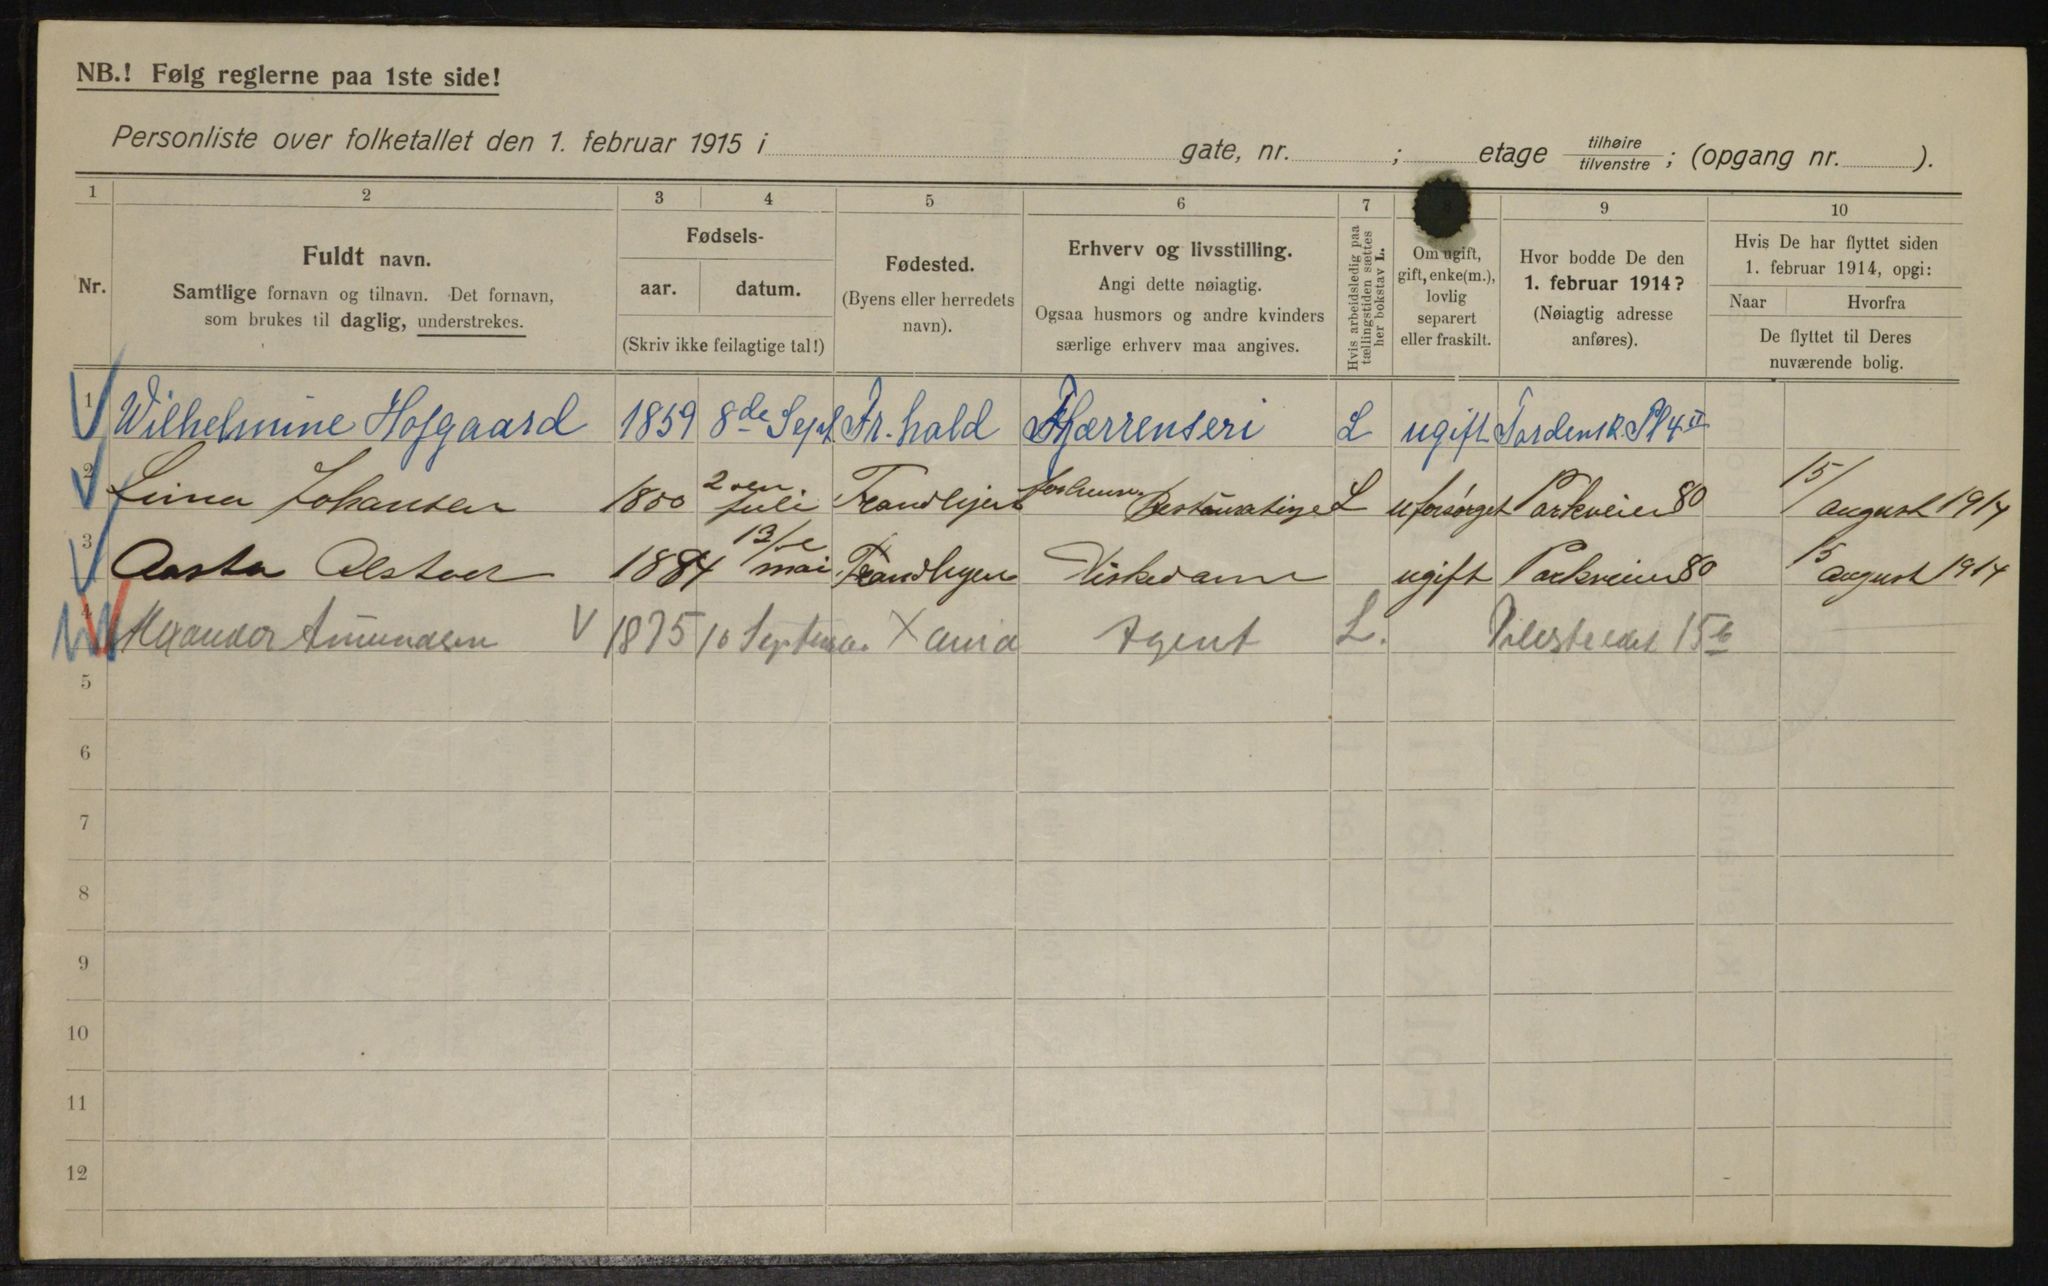 NB.! Følg reglerne paa 1ste side!
Personliste over folketallet den 1. februar 1915 i gate, nr. ; etage tilhøire tilvenstre ; (opgang nr. ).
1 2 3 4 5 6 7 8 9 10
Nr.
Fuldt navn.
Samtlige fornavn og tilnavn. Det fornavn,
som brukes til daglig, understrekes.
Fødsels-
aar. datum.
(Skriv ikke feilagtige tal!)
Fødested.
(Byens eller herredets
navn).
Erhverv og livsstilling.
Angi dette nøiagtig.
Ogsaa husmors og andre kvinders
særlige erhverv maa angives.
Hvis arbeidsledig paa
tællingstiden sættes
her bokstav L.
Om ugift,
gift, enke(m.),
lovlig
separert
eller fraskilt.
Hvor bodde De den
1. februar 1914?
(Nøiagtig adresse
anføres).
Hvis De har flyttet siden
1. februar 1914, opgi:
Naar Hvorfra
De flyttet til Deres
nuværende bolig.
1 Wilhelmine Hofgaard 1859 8de Sept Fr.hald Hjærrenseri L ugift Tordensk. Pl 4 II
2 Johansen 1850 2den juli Trondhjem L uforsørget Parkveien 80 15/ august 1914
3 Aasta 1884 13/de mai Trondhjem ugift Parkveien 80 15 august 1914
4 Alexander Amundsen V 1875 10 September Xania Agent L. Pilestrædet 15b
5
6
7
8
9
10
11
12